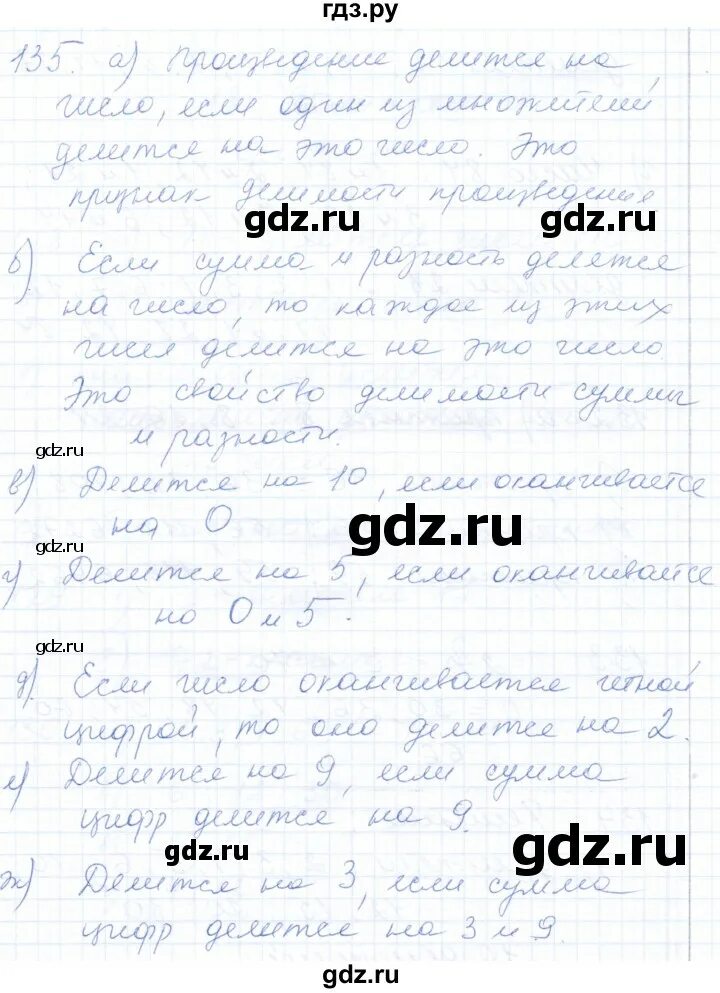 гдз.ру
135. а) Произведение делится на
число, если один из множителей
делится на это число. Это
признак делимости произведения
gdz.ru gdz.ru
б) Если сумма и разность делятся
на число, то каждое из этих
чисел делится на это число.
Это свойство делимости суммы
и разности.
gdz.ru
в) Делится на 10, если оканчивается
на 0
gdz.ru
gdz.ru
г) Делится на 5, если оканчивается
на 0 и 5.
gdz.ru
д) Если число оканчивается четной
цифрой, то оно делится на 2.
е) Делится на 9, если сумма
цифр делится на 9.
gdz.ru
gdz.ru
ж) Делится на 3, если сумма
цифр делится на 3 и 9.
gdz.ru